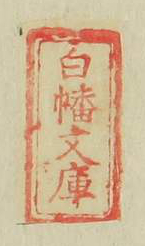 白幡文庫